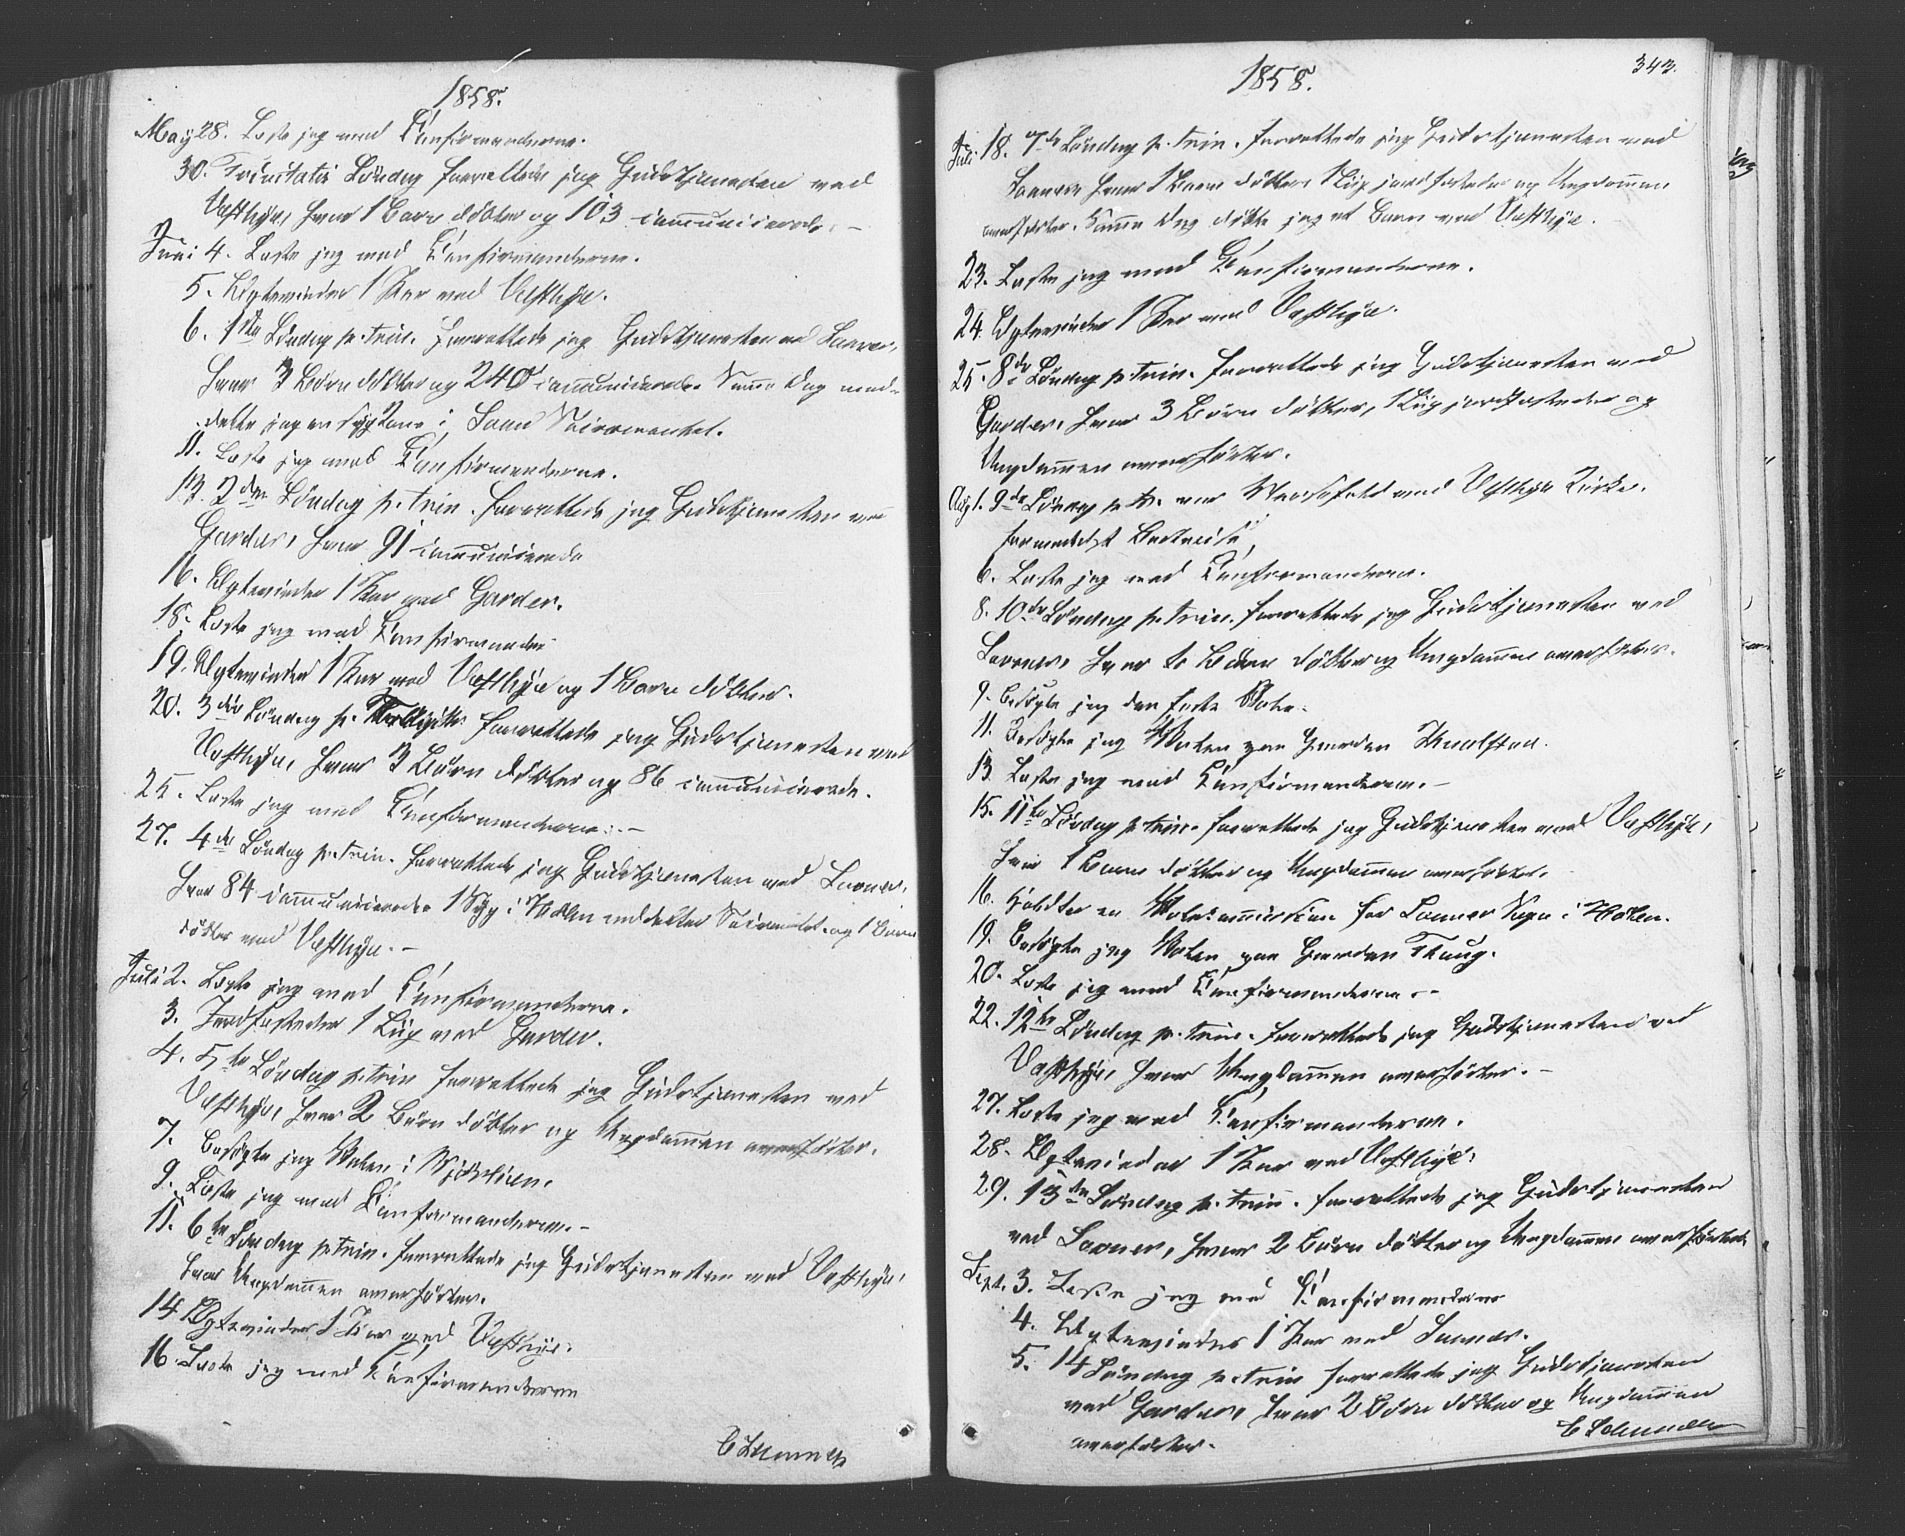 1858.
May 28. Læste jeg med Confirmanderne.
30. Trinitatis Søndag forrettede jeg Gudstjenesten ved
Vestbye, hvor 1 Barn døbtes og 103 communicerede. –
Juni 4. Læste jeg med Confirmanderne.
5. Ægteviedes 1 Par ved Vestbye.
6. 1ste Søndag p. Trin. forrettede jeg Gudstjenesten ved Soner,
hvor 3 Børn døbtes og 240 communicerede. Samme Dag med-
delte jeg en syg Kone i Soon Sacramentet.
11. Læste jeg med Confirmanderne.
13. 2den Søndag p. Trin. forrettede jeg Gudstjenesten ved
Garder, hvor 91 communicerede
16. Ægteviedes 1 Par ved Garder.
18. Læste jeg med Confirmander
19. Ægteviedes 1 Par ved Vestbye og 1 Barn døbtes.
20. 3die Søndag p. forrettede jeg Gudstjenesten ved
Vestbye, hvor 3 Børn døbtes og 86 communicerede.
25. Læste jeg med Confirmanderne. –
27. 4de Søndag p. Trin. forrettede jeg Gudstjenesten ved Soner,
hvor 84 communicerede. 1 Syg i Hølen meddeltes Sacramtet. og 1 Barn
døbtes ved Vestbye. –
Juli 2. Læste jeg med Confirmanderne.
3. Jordfæstedes 1 Liig ved Garder.
4. 5te Søndag p. Trin forrettede jeg Gudstjenesten ved
Vestbye, hvor 2 Børn døbtes og Ungdommen overhørtes.
7. Besøgte jeg Skolen i
9. Læste jeg med Confirmanderne. –
11. 6te Søndag p. Trin. forrettede jeg Gudstjenesten ved Vestbye,
hvor Ungdommen overhørtes.
14 Ægteviedes 1 Par ved Vestbye.
16. Læste jeg med Confirmanderne
1858.
343.
Juli 18. 7de Søndag p. Trin. forrettede jeg Gudstjenesten ved
Soner hvor 1 Barn døbtes, 1 Liig jordfæstedes og Ungdommen
overhørtes. Samme Dag døbte jeg et Barn ved Vestbye.
23. Læste jeg med Confirmanderne.
24. Ægteviedes 1 Par ved Vestbye.
25. 8de Søndag p. Trin. forrettede jeg Gudstjenesten ved
Garder, hvor 3 Børn døbtes, 1 Liig jordfæstedes og
Ungdommen overhørtes.
Aug. 1. 9de Søndag p. Tr. var Messefald ved Vestbye Kirke,
formedelst Bortreise
6. Læste jeg med Confirmanderne.
8. 10de Søndag p. Trin. forrettede jeg Gudstjenesten ved
Soner, hvor 6 Børn døbtes og Ungdommen overhørtes.
9. Besøgte jeg den faste Skole.
11. Besøgte jeg Skolen paa Gaarden
13. Læste jeg med Confirmanderne. –
15. 11te Søndag p. Trin. forrettede jeg Gudstjenesten ved Vestbye,
hvor 1 Barn døbtes og Ungdommen overhørtes.
16. Holdtes en Skolecommission for Soner Sogn i Hølen.
19. Besøgte jeg Skolen paa Gaarden
20. Læste jeg med Confirmanderne. –
22. 12te Søndag p. Trin. forrettede jeg Gudstjenesten ved
Vestbye, hvor Ungdommen overhørtes. –
27. Læste jeg med Confirmanderne.
28. Ægteviedes 1 Par ved Vestbye.
29. 13de Søndag p. Trin. forrettede jeg Gudstjenesten
ved Soner, hvor 2 Børn døbtes og Ungdommen overhørtes.
Sept. 3. Læste jeg med Confirmanderne
4. Ægteviedes 1 Par ved Soner.
5. 14 Søndag p. Trin forrettede jeg Gudstjenesten
ved Garder, hvor 2 Børn døbtes og Ungdommen
overhørtes.